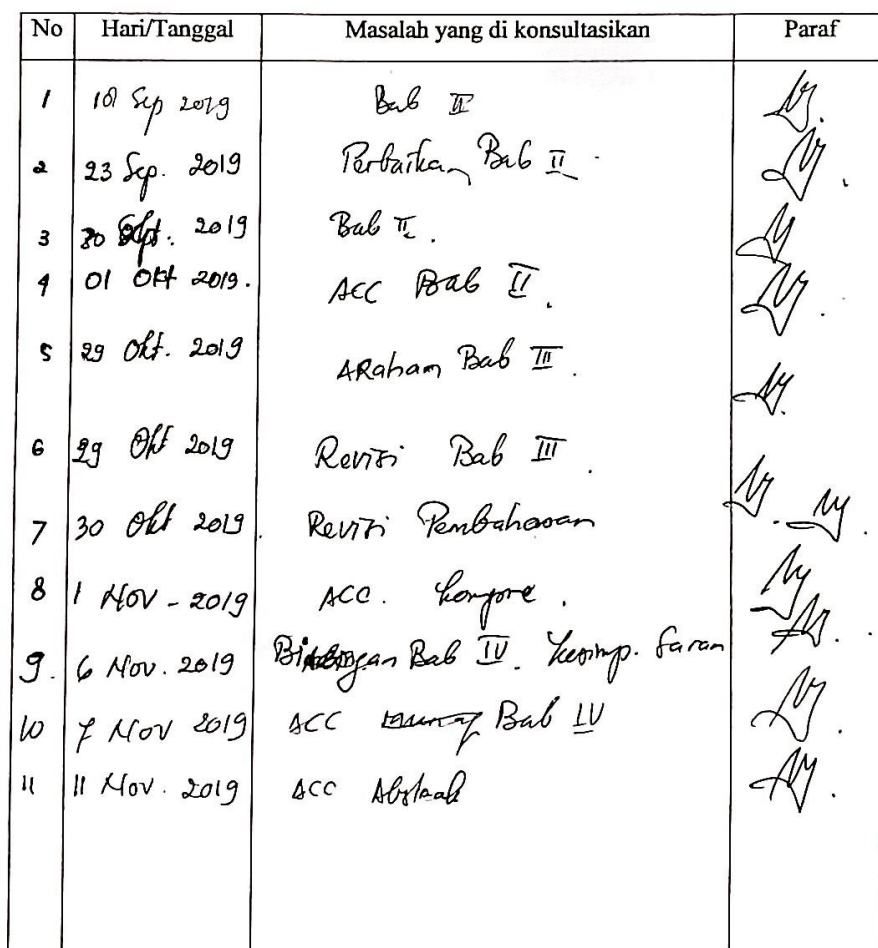 No Hari/Tanggal Masalah yang di konsultasikan Paraf
1 18 Sep 2019 Bab II
2 23 Sep. 2019 Perbaikan Bab II.
3 30 Sept. 2019 Bab II.
4 01 Okt 2019. ACC Bab II.
5 29 Okt. 2019 ARahan Bab III.
6 29 Okt 2019 Revisi Bab III.
7 30 Okt 2019. Revisi Pembahasan
8 1 Nov - 2019 ACC. kompre.
9. 6 Nov. 2019 Bimbingan Bab IV. Kesimp. Saran
10 7 Nov 2019 ACC Bab IV
11 11 Nov. 2019 ACC Abstrak